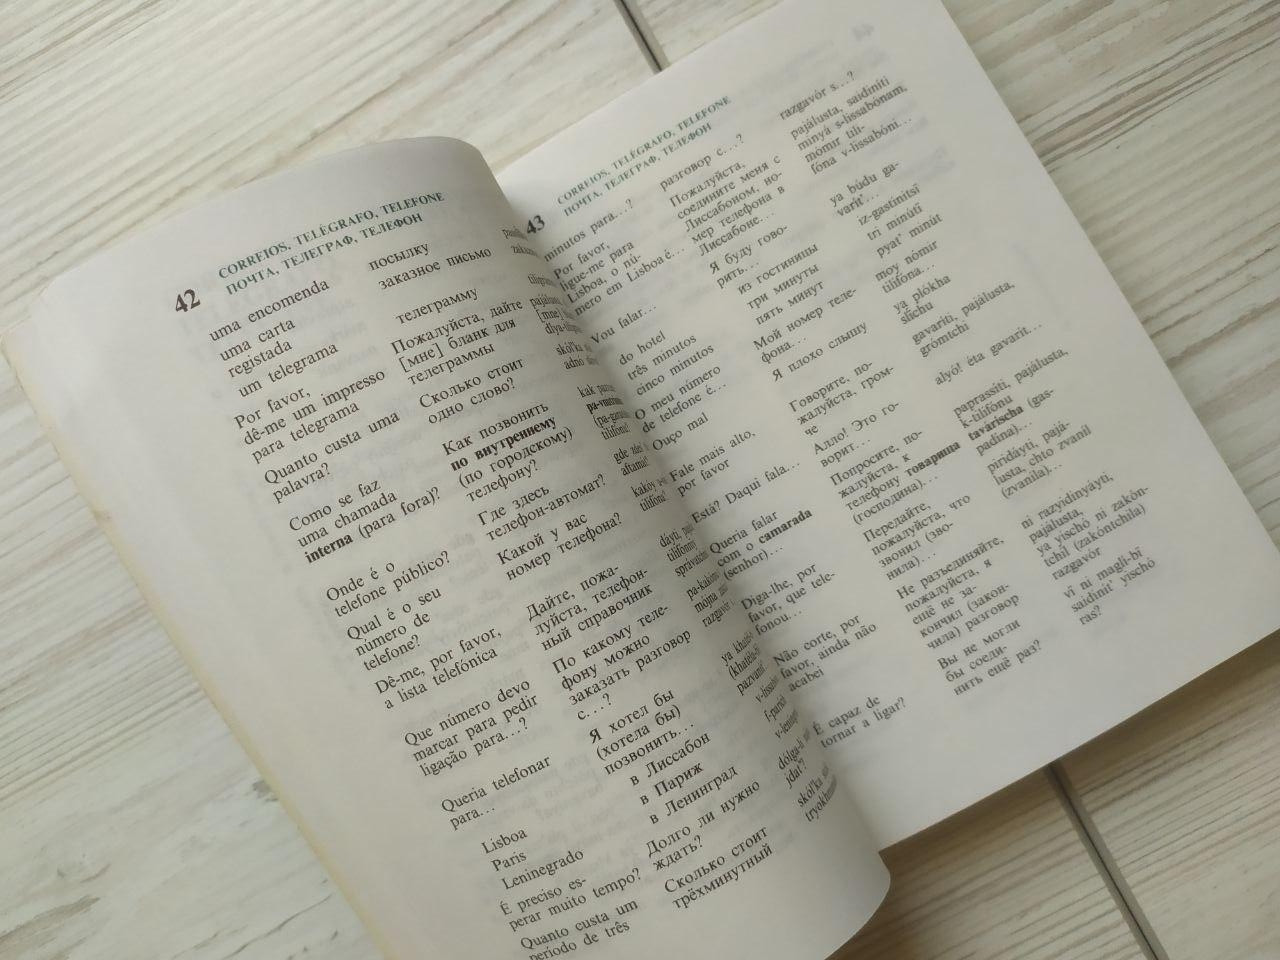 42
CORREIOS, TELÉGRAFO, TELEFONE
ПОЧТА, ТЕЛЕГРАФ, ТЕЛЕФОН
uma encomenda
посылку
uma carta
registada
заказное письмо
um telegrama
телеграмму
Por favor,
dê-me um impresso
para telegrama
Пожалуйста, дайте
[мне] бланк для
телеграммы
Quanto custa uma
palavra?
Сколько стоит
одно слово?
Como se faz
uma chamada
interna (para fora)?
Как позвонить
по внутреннему
(по городскому)
телефону?
Onde é o
telefone público?
Где здесь
телефон-автомат?
Qual é o seu
número de
telefone?
Какой у вас
номер телефона?
Dê-me, por favor,
a lista telefónica
Дайте, пожа-
луйста, телефон-
ный справочник
Que número devo
marcar para pedir
ligação para...?
По какому теле-
фону можно
заказать разговор
с...?
Queria telefonar
para...
Я хотел бы
(хотела бы)
позвонить...
Lisboa
в Лиссабон
Paris
в Париж
Leninegrado
в Ленинград
É preciso es-
perar muito tempo?
Долго ли нужно
ждать?
Quanto custa um
período de três
Сколько стоит
трёхминутный
43
CORREIOS, TELÉGRAFO, TELEFONE
ПОЧТА, ТЕЛЕГРАФ, ТЕЛЕФОН
minutos para...?
разговор с...?
razgavór s...?
Por favor,
ligue-me para
Lisboa, o nú-
mero em Lisboa é...
Пожалуйста,
соедините меня с
Лиссабоном, но-
мер телефона в
Лиссабоне...
pajálusta, saidiníti
minyá s-lissabónam,
nómir tili-
fóna v-lissabóni...
Vou falar...
Я буду гово-
рить...
ya búdu ga-
varít'...
do hotel
из гостиницы
iz-gastínitsî
três minutos
три минуты
tri minúti
cinco minutos
пять минут
pyat' minút
O meu número
de telefone é...
Мой номер теле-
фона...
moy nómir
tilifóna...
Ouço mal
Я плохо слышу
ya plókha
slíchu
Fale mais alto,
por favor
Говорите, по-
жалуйста, гром-
че
gavaríti, pajálusta,
grómtchi
Está? Daqui fala...
Алло! Это го-
ворит...
alyó! éta gavarít...
Queria falar
com o camarada
(senhor)...
Попросите, по-
жалуйста, к
телефону товарища
(господина)...
paprassíti, pajálusta,
k-tilifónu
tavárischa (gas-
padína)...
Diga-lhe, por
favor, que tele-
fonou...
Передайте,
пожалуйста, что
звонил (зво-
нила)...
piridáyti, pajá-
lusta, chto zvaníl
(zvaníla)...
Não corte, por
favor, ainda não
acabei
Не разъединяйте,
пожалуйста, я
ещё не за-
кончил (закон-
чила) разговор
ni razyidinyáyti,
pajálusta,
ya yischó ni zakón-
tchil (zakóntchila)
razgavór
É capaz de
tornar a ligar?
Вы не могли
бы соеди-
нить ещё раз?
vî ni maglí-bî
saidinít' yischó
ras?